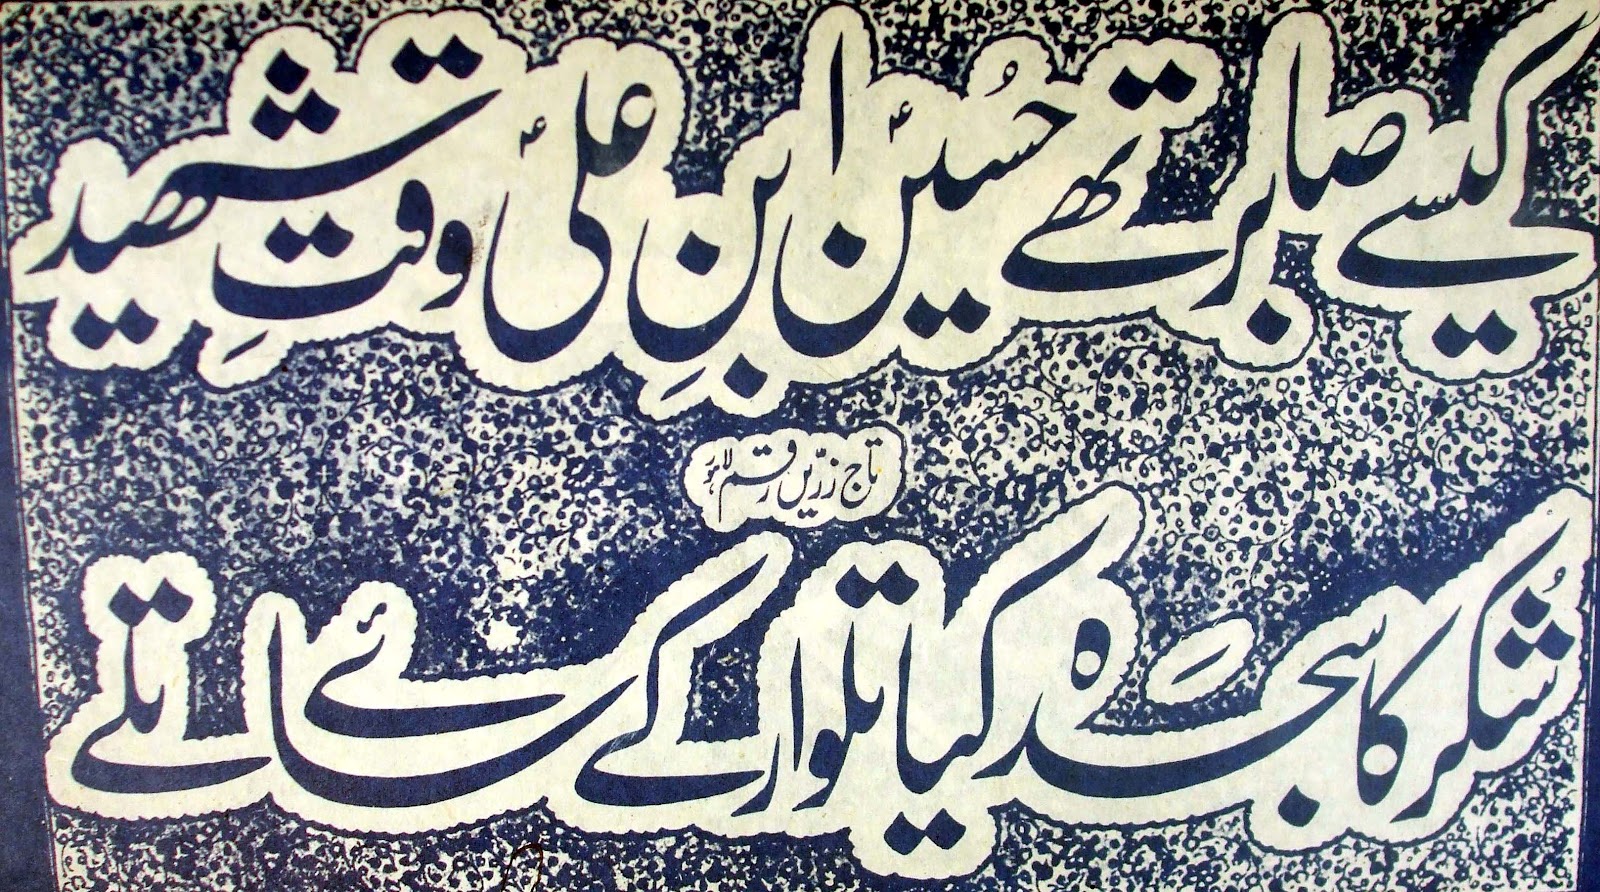 کیسے صابر تھے حسینؑ ابنِ علیؑ وقتِ شہید
تاج زرّیں رقم لاہور
شُکر کا سجدہ کیا تلوار کے سائے تلے